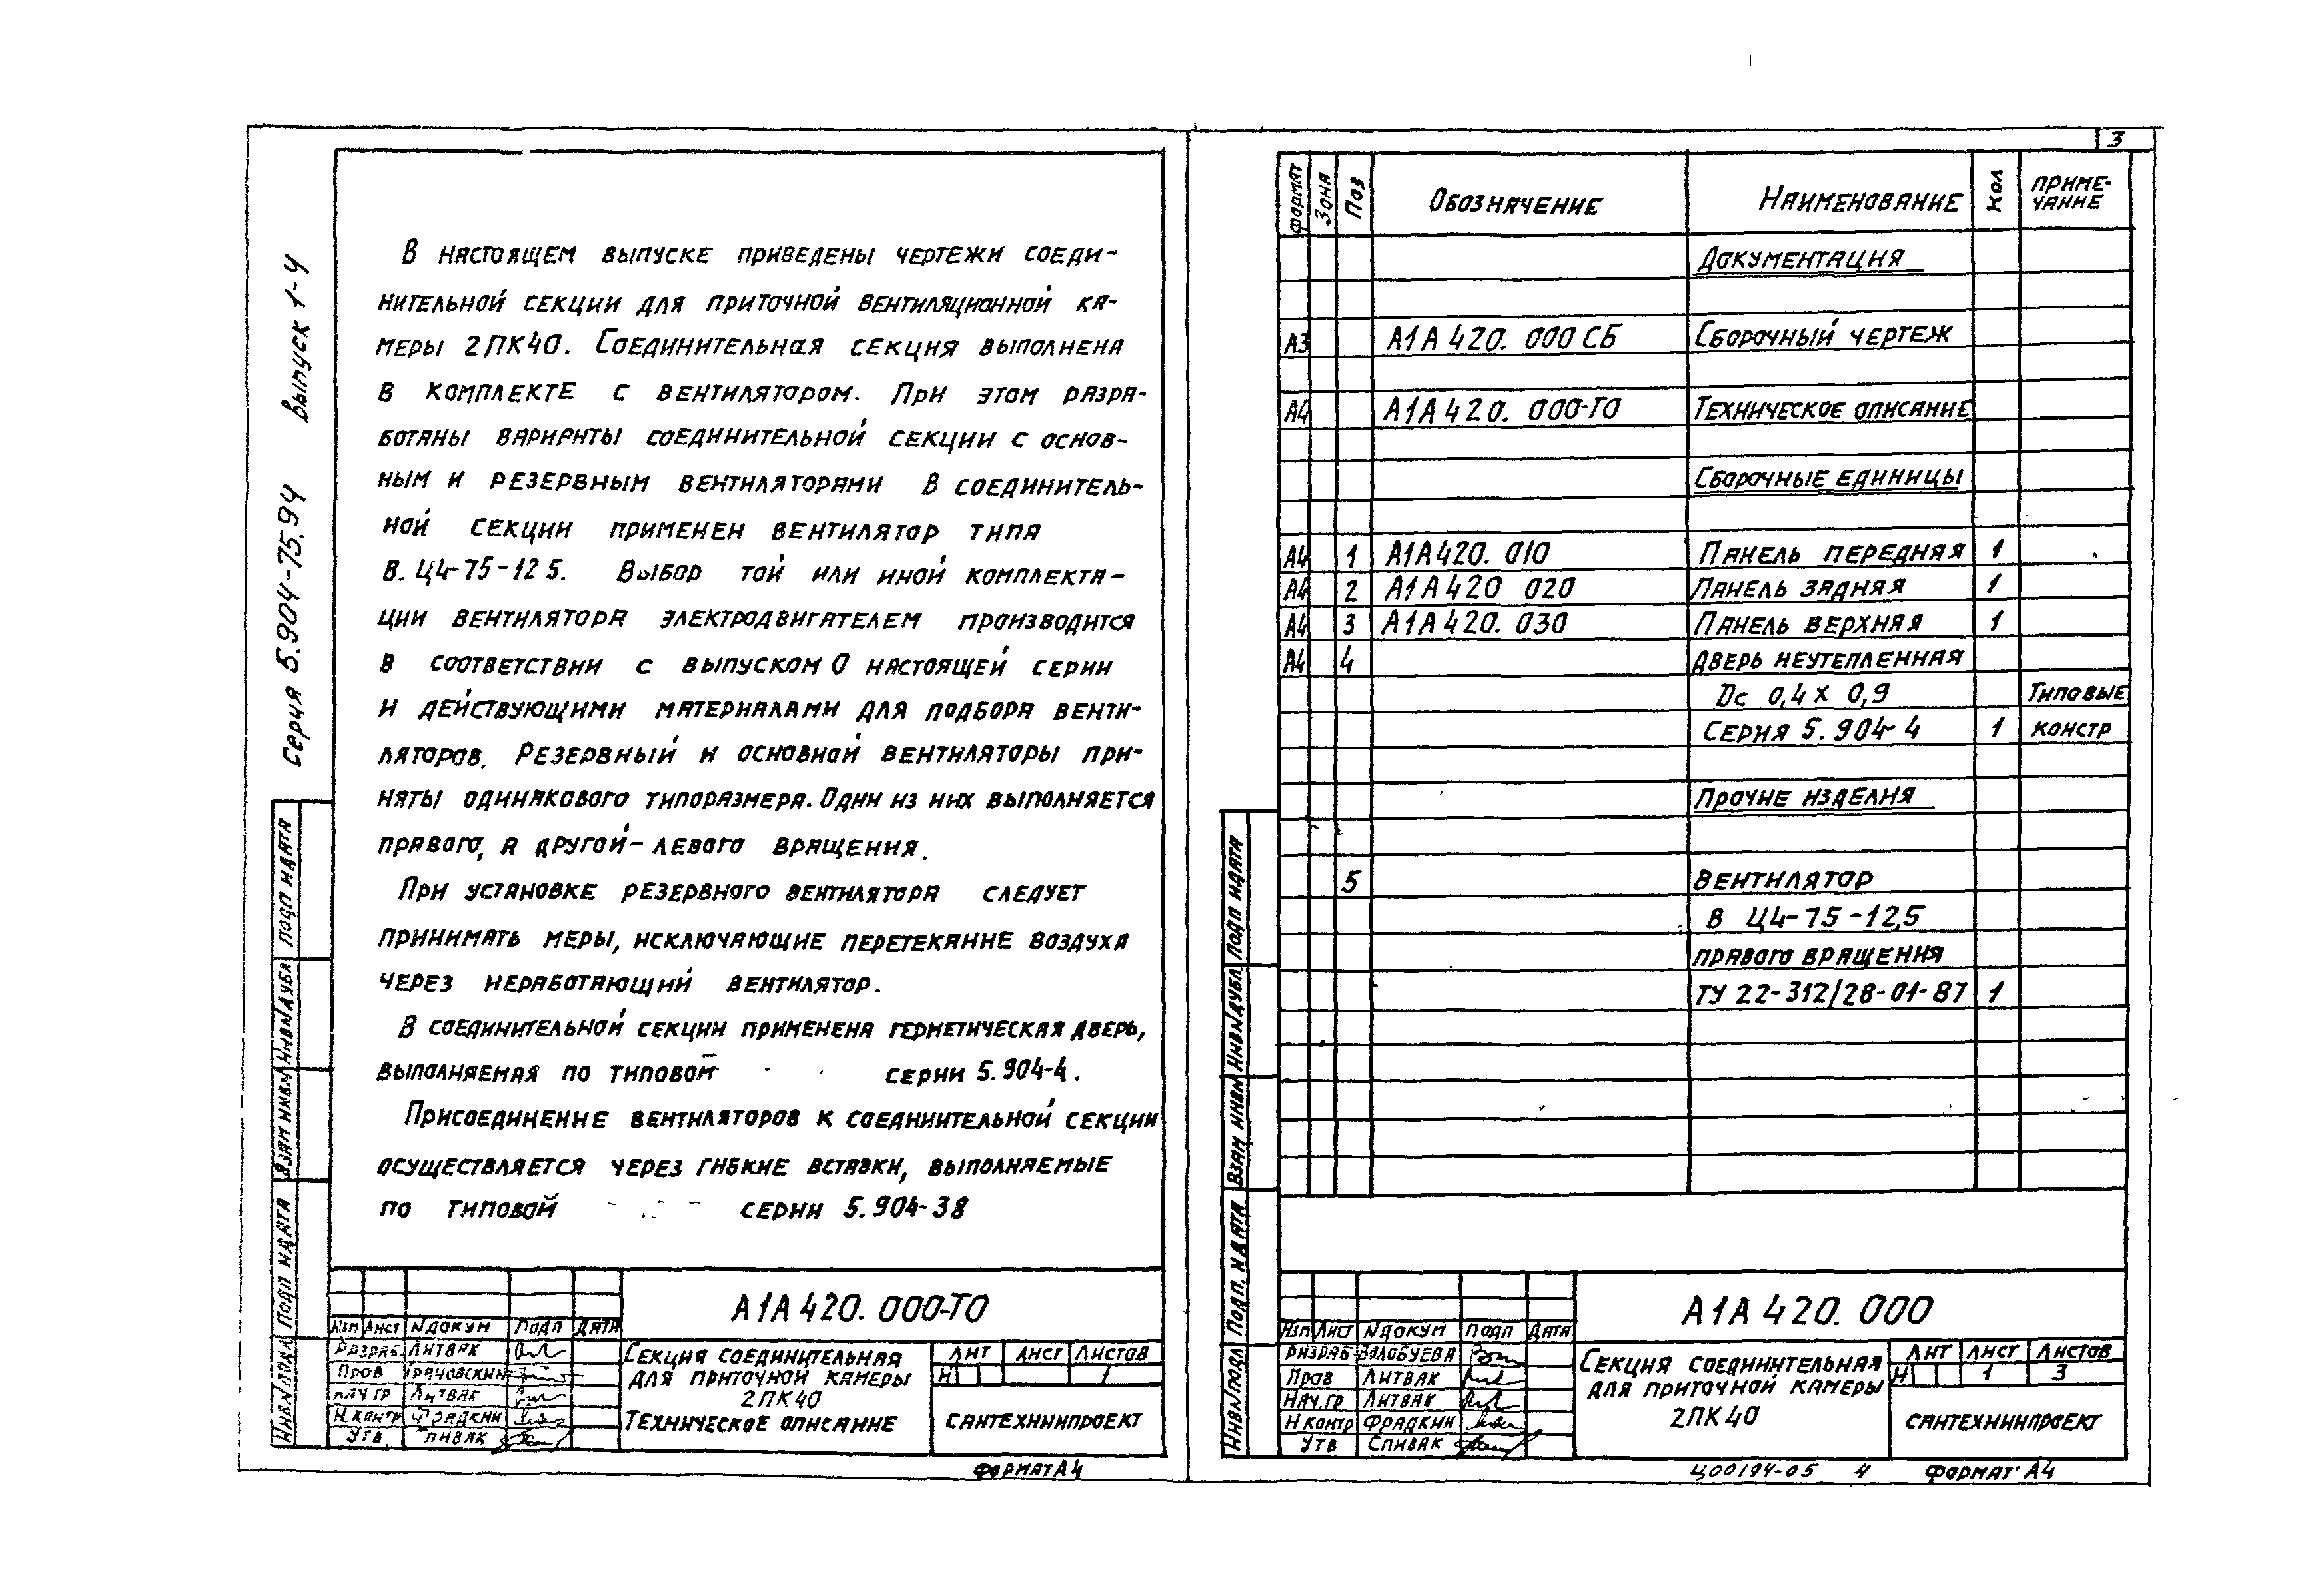 Серия 5.904-75.94 Выпуск 1-4
В настоящем выпуске приведены чертежи соеди-
нительной секции для приточной вентиляционной ка-
меры 2ПК40. Соединительная секция выполнена
в комплекте с вентилятором. При этом разра-
ботаны варианты соединительной секции с основ-
ным и резервным вентиляторами В соединитель-
ной секции применен вентилятор типа
В. Ц4-75-12 5. Выбор той или иной комплекта-
ции вентилятора электродвигателем производится
в соответствии с выпуском 0 настоящей серии
и действующими материалами для подбора венти-
ляторов. Резервный и основной вентиляторы при-
няты одинакового типоразмера. Один из них выполняется
правого, а другой - левого вращения.
При установке резервного вентилятора следует
принимать меры, исключающие перетекание воздуха
через неработающий вентилятор.
В соединительной секции применена герметическая дверь,
выполняемая по типовой серии 5.904-4.
Присоединение вентиляторов к соединительной секции
осуществляется через гибкие вставки, выполняемые
по типовой серии 5.904-38
Подп и дата
Инв N дубл
Взам инв N
Подп и дата
Инв N подл
А1А 420. 000-ТО
Изм Лист N докум Подп Дата
Разраб Литвак
Пров
Нач гр Литвак
Н. контр Фрадкин
Утв Спивак
Секция соединительная
для приточной камеры
2ПК40
Техническое описание
Лит Лист Листов
И 1
Сантехниипроект
Формат А4
3
Формат Зона Поз Обозначение Наименование Кол Приме-
чание
Документация
А3 А1А 420. 000 СБ Сборочный чертеж
А4 А1А 420. 000-ТО Техническое описание
Сборочные единицы
А4 1 А1А 420. 010 Панель передняя 1
А4 2 А1А 420 020 Панель задняя 1
А4 3 А1А 420. 030 Панель верхняя 1
А4 4 Дверь неутепленная
Dс 0,4 х 0,9 Типовые
Серия 5.904-4 1 констр
Прочие изделия
5 Вентилятор
В Ц4-75-12,5
правого вращения
ТУ 22-312/28-01-87 1
Подп и дата
Инв N дубл
Взам инв N
Подп. и дата
Инв N подл
А1А 420. 000
Изм Лист N докум Подп Дата
Разраб Волобуева
Пров Литвак
Нач. гр Литвак
Н контр Фрадкин
Утв Спивак
Секция соединительная
для приточной камеры
2ПК40
Лит Лист Листов
И 1 3
Сантехниипроект
Ц00194-05 4 Формат А4